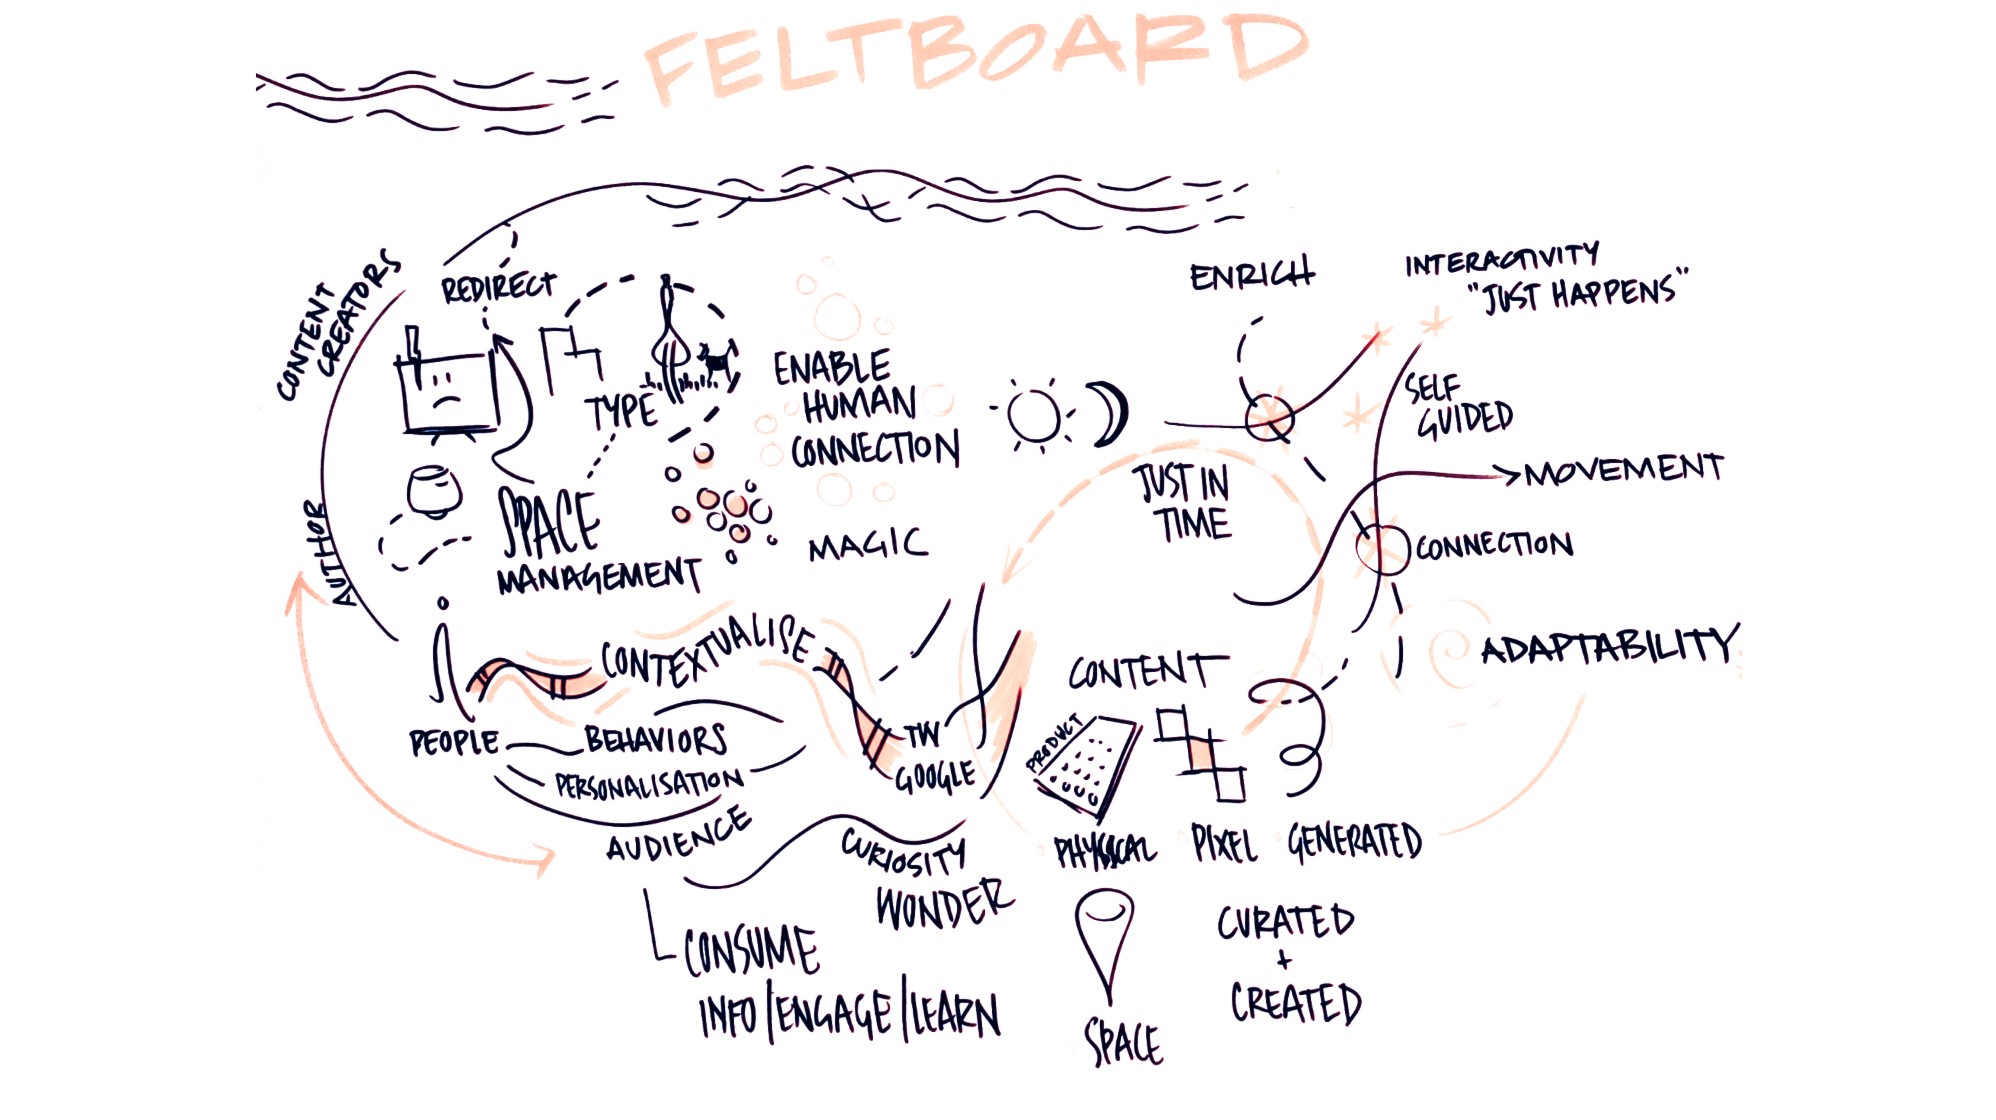 FELTBOARD
CONTENT
CREATORS
REDIRECT
TYPE
ENABLE
HUMAN
CONNECTION
ENRICH
INTERACTIVITY
"JUST HAPPENS"
SELF
GUIDED
JUST IN
TIME
MOVEMENT
CONNECTION
AUTHOR
SPACE
MANAGEMENT
MAGIC
CONTEXTUALISE
CONTENT
ADAPTABILITY
PEOPLE
BEHAVIORS
PERSONALISATION
AUDIENCE
TW
GOOGLE
PRODUCT
PHYSICAL
PIXEL
GENERATED
CURIOSITY
WONDER
CONSUME
INFO/ENGAGE/LEARN
SPACE
CURATED
+
CREATED